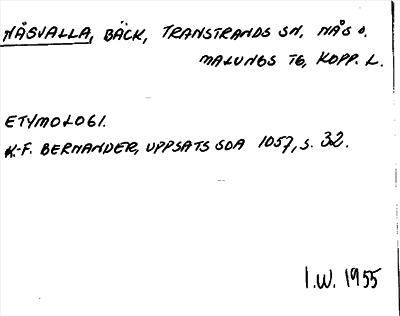 NÅSVALLA, BÄCK, TRANSTRANDS SN, NÅS O.
MALUNGS TG, KOPP. L.
ETYMOLOGI.
K.-F. BERNANDER, UPPSATS SOA 1057, S. 32.
I.W. 1955